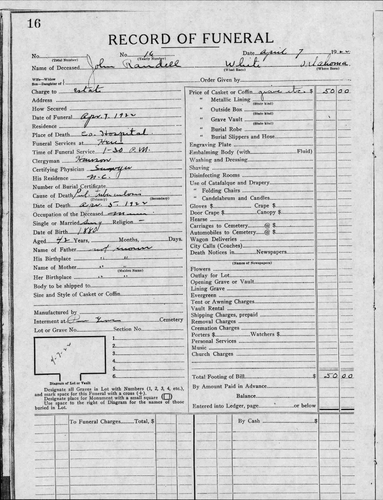 16
RECORD OF FUNERAL
No. No. 16 Date April 7
(Total Number) (Yearly Number)
Name of Deceased John Randell White
(What Race) (Where Born)
Wife—Widow
Son—Daughter of Order Given by
Charge to estate
Address
How Secured
Date of Funeral Apr. 7. 1922
Residence
Place of Death Co. Hospital
Funeral Services at Here
Time of Funeral Service 1-30 P.M.
Clergyman
Certifying Physician
His Residence
Number of Burial Certificate
Cause of Death
(Primary) (Secondary)
Date of Death Apr. 5. 1922
Occupation of the Deceased
Single or Married Sing Religion
Date of Birth 1880
Aged 42 Years, Months, Days.
Name of Father not known
His Birthplace
Name of Mother
(Maiden Name)
Her Birthplace
Body to be shipped to
Size and Style of Casket or Coffin
Manufactured by
Interment at Cemetery
Lot or Grave No. Section No.
4-7-22
1.
2.
3.
4.
5.
6.
Diagram of Lot or Vault
Designate all Graves in Lot with Numbers (1, 2, 3, 4, etc.),
and mark space for this Funeral with a cross (+).
Designate place for Monument with a small square
Use space to the right of Diagram for the names of those
buried in Lot.
Price of Casket or Coffin grave etc. $ 50 00
" Metallic Lining
(State Kind)
" Outside Box
(State Kind)
" Grave Vault
(State Kind)
" Burial Robe
" Burial Slippers and Hose
Engraving Plate
Embalming Body (with Fluid)
Washing and Dressing
Shaving
Disinfecting Rooms
Use of Catafalque and Drapery
" Folding Chairs
" Candelabrum and Candles
Gloves $ Crape $
Door Crape $ Canopy $
Hearse
Carriages to Cemetery @ $
Automobiles to Cemetery @ $
Wagon Deliveries
City Calls (Coaches)
Death Notices in Newspapers
(Names of Newspapers)
Flowers
Outlay for Lot
Opening Grave or Vault
Lining Grave
Evergreen
Tent or Awning Charges
Vault Rental
Shipping Charges, prepaid
Removal Charges
Cremation Charges
Porters $ Watchers $
Personal Services
Music
Church Charges
Total Footing of Bill $ 50 00
By Amount Paid in Advance
Balance
Entered into Ledger, page or below.
To Funeral Charges, Total $ By Cash $